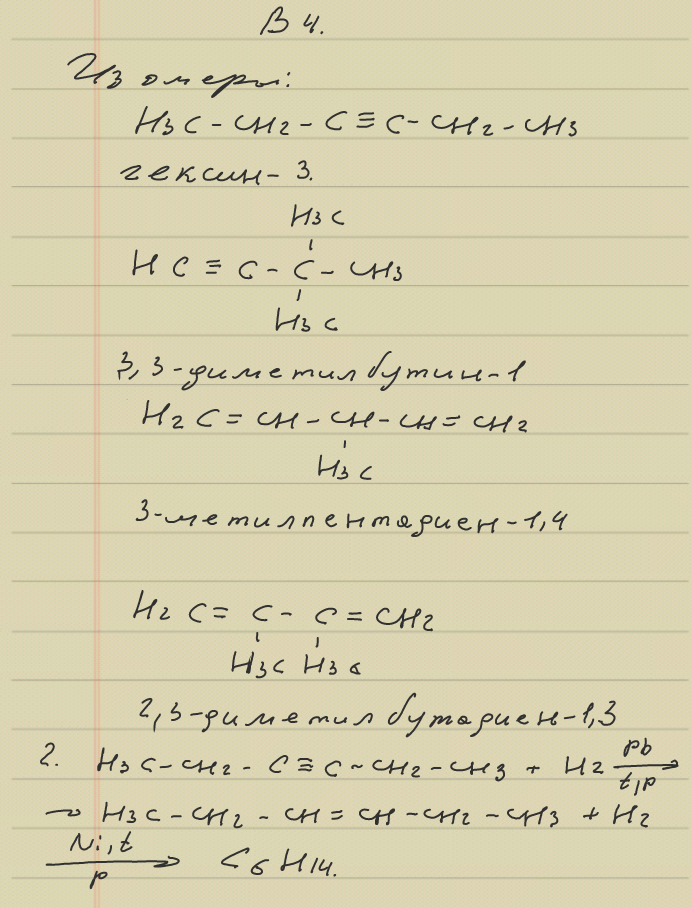 В 4.
Изомеры:
H3C - CH2 - C ≡ C - CH2 - CH3
гексин - 3.
H3C
HC ≡ C - C - CH3
H3C
3,3-диметилбутин-1
H2C = CH - CH - CH = CH2
H3C
3-метилпентадиен-1,4
H2C = C - C = CH2
H3C H3C
2,3-диметилбутадиен-1,3
2. H3C - CH2 - C ≡ C - CH2 - CH3 + H2 pb
t,p
→ H3C - CH2 - CH = CH - CH2 - CH3 + H2
Ni,t
p C6H14.